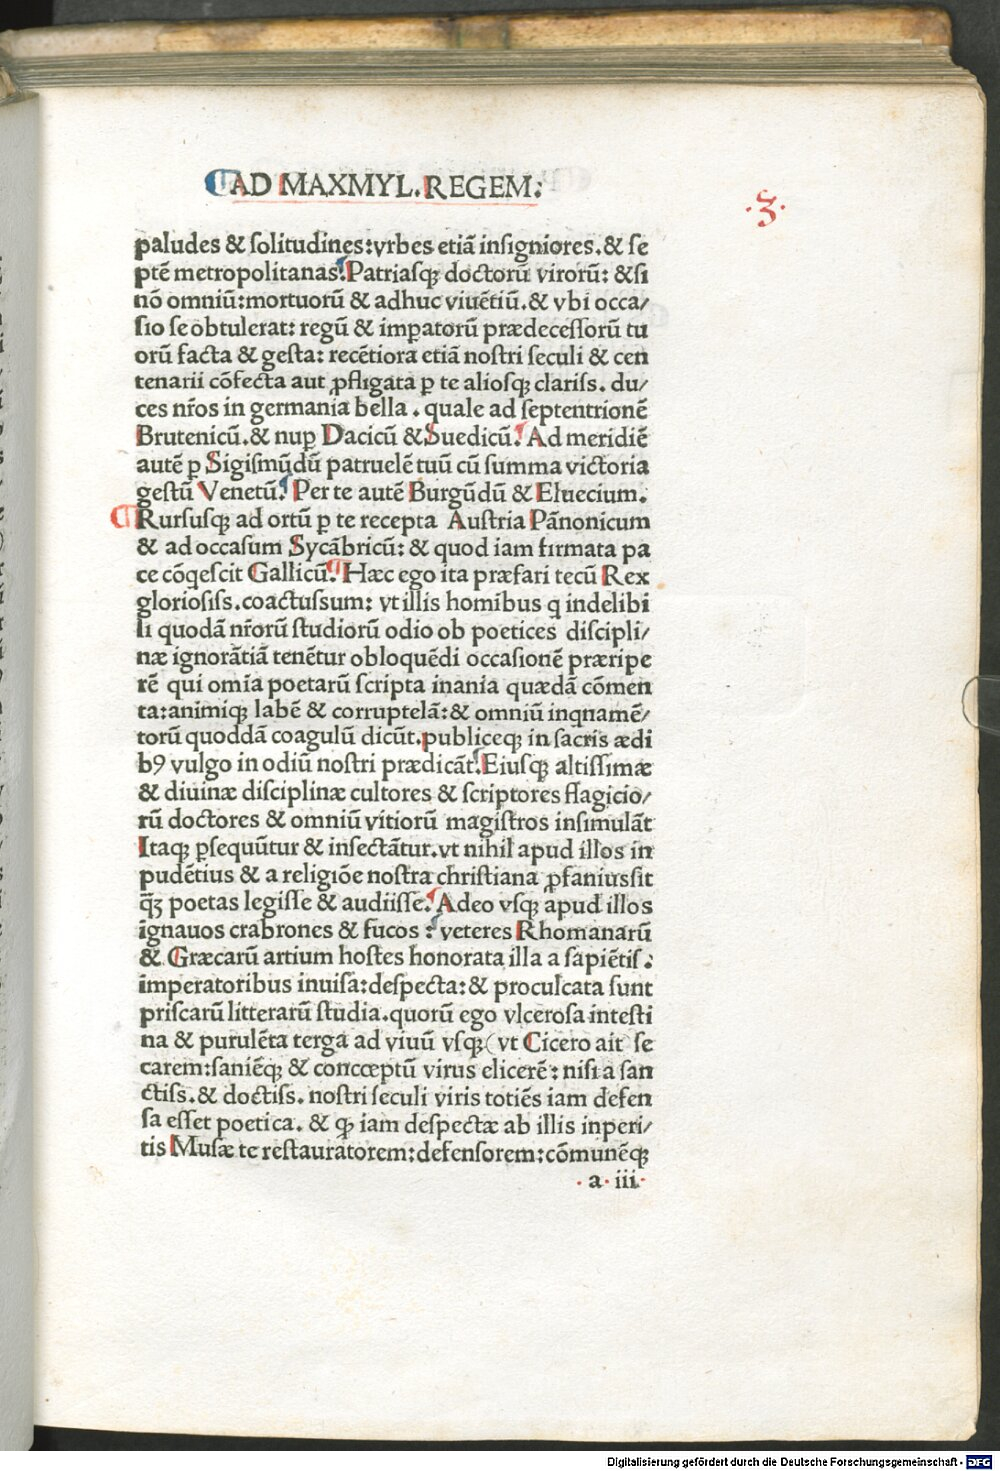 ¶AD MAXMYL. REGEM:
.3.
paludes & ſolitudines: vrbes etiā inſigniores. & ſe
ptē metropolitanas. Patriaſqꝫ doctorū virorū: & ſi
nō omniū: mortuorū & adhuc viuētiū. & vbi occa/
ſio ſe obtulerat: regū & imꝑatorū prædeceſſorū tu
orū facta & geſta: recētiora etiā noſtri ſeculi & cen
tenarii cōfecta aut ꝓfligata ꝑ te alioſqꝫ clariſſ. du/
ces nr̄os in germania bella. quale ad ſeptentrionē
Brutenicū. & nuꝑ Dacicū & Suedicū. Ad meridiē
autē ꝑ Sigiſmūdū patruelē tuū cū ſumma victoria
geſtū Venetū. Per te autē Burgūdū & Eluecium.
¶Rurſuſqꝫ ad ortū ꝑ te recepta Auſtria Pānonicum
& ad occaſum Sycābricū: & quod iam firmata pa
ce cōqeſcit Gallicū. Hæc ego ita præfari tecū Rex
glorioſiſſ. coactuſſum: vt illis homībus q indelibi
li quodā nr̄orū ſtudiorū odio ob poetices diſcipli/
næ ignorātiā tenētur obloquēdi occaſionē præripe
rē qui omīa poetarū ſcripta inania quædā cōmen
ta: animiqꝫ labē & corruptelā: & omniū inqnamē/
torū quoddā coagulū dicūt. publiceqꝫ in ſacris ædi
b9 vulgo in odiū noſtri prædicāt. Eiuſqꝫ altiſſimæ
& diuinæ diſciplinæ cultores & ſcriptores flagicio/
rū doctores & omniū vitiorū magiſtros inſimulāt
Itaqꝫ ꝑſequūtur & inſectātur. vt nihil apud illos in
pudētius & a religiōe noſtra chriſtiana ꝓfaniusſit
q̄ꝫ poetas legiſſe & audiiſſe. Adeo vſqꝫ apud illos
ignauos crabrones & fucos: veteres Rhomanarū
& Græcarū artium hoſtes honorata illa a ſapiētiſ.
imperatoribus inuiſa: deſpecta: & proculcata ſunt
priſcarū litterarū ſtudia. quorū ego vlceroſa inteſti
na & purulēta terga ad viuū vſqꝫ (vt Cicero ait ſe
carem: ſaniēqꝫ & conccœptū virus elicerē: niſi a ſan
ctiſſ. & doctiſſ. noſtri ſeculi viris totiēs iam defen
ſa eſſet poetica. & qꝫ iam deſpectæ ab illis inperi/
tis Muſæ te reſtauratorem: defenſorem: cōmunēqꝫ
.a.iii.
Digitalisierung gefördert durch die Deutsche Forschungsgemeinschaft - DFG